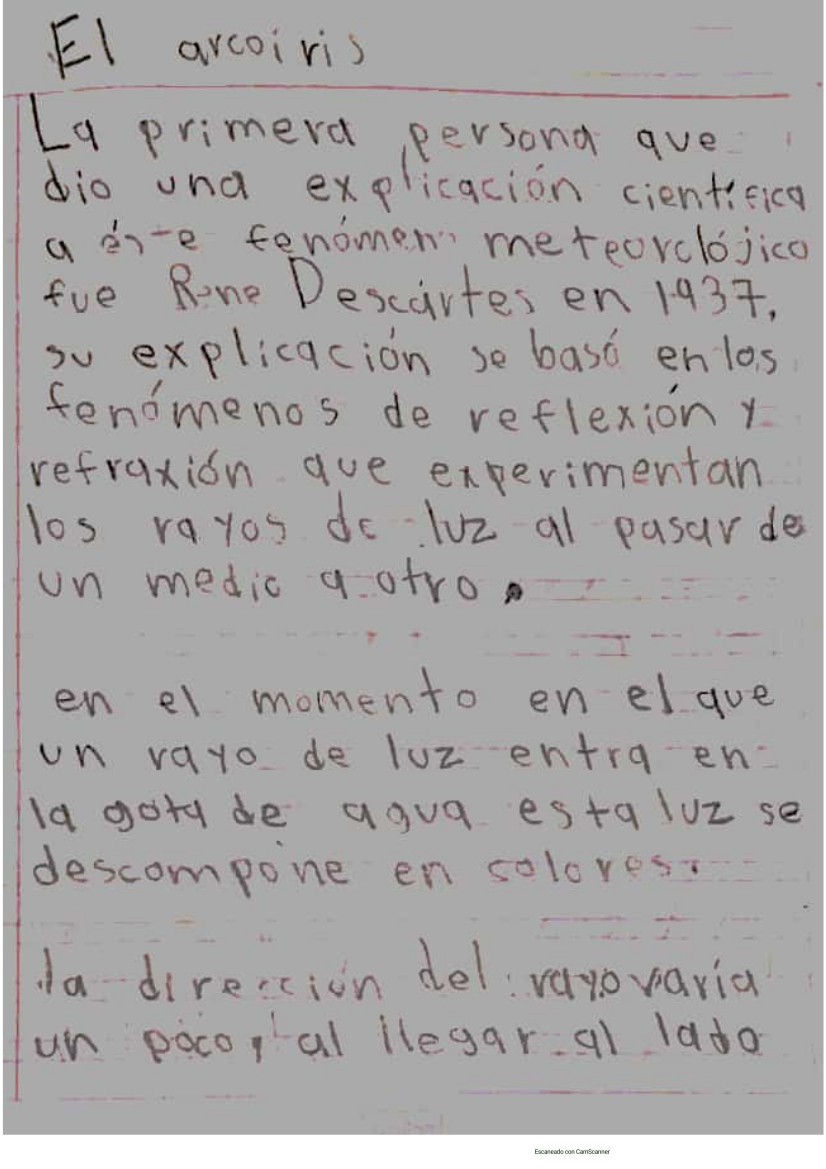 El arcoiris
La primera persona que
dio una explicación científica
a éste fenómeno meteorolójico
fue Rene Descártes en 1937,
su explicación se basó en los
fenómenos de reflexión y
refraxión que experimentan
los rayos de luz al pasar de
un medio a otro.
en el momento en el que
un rayo de luz entra en
la gota de agua esta luz se
descompone en colores.
la dirección del rayo varía
un poco, al llegar al lado
Escaneado con CamScanner